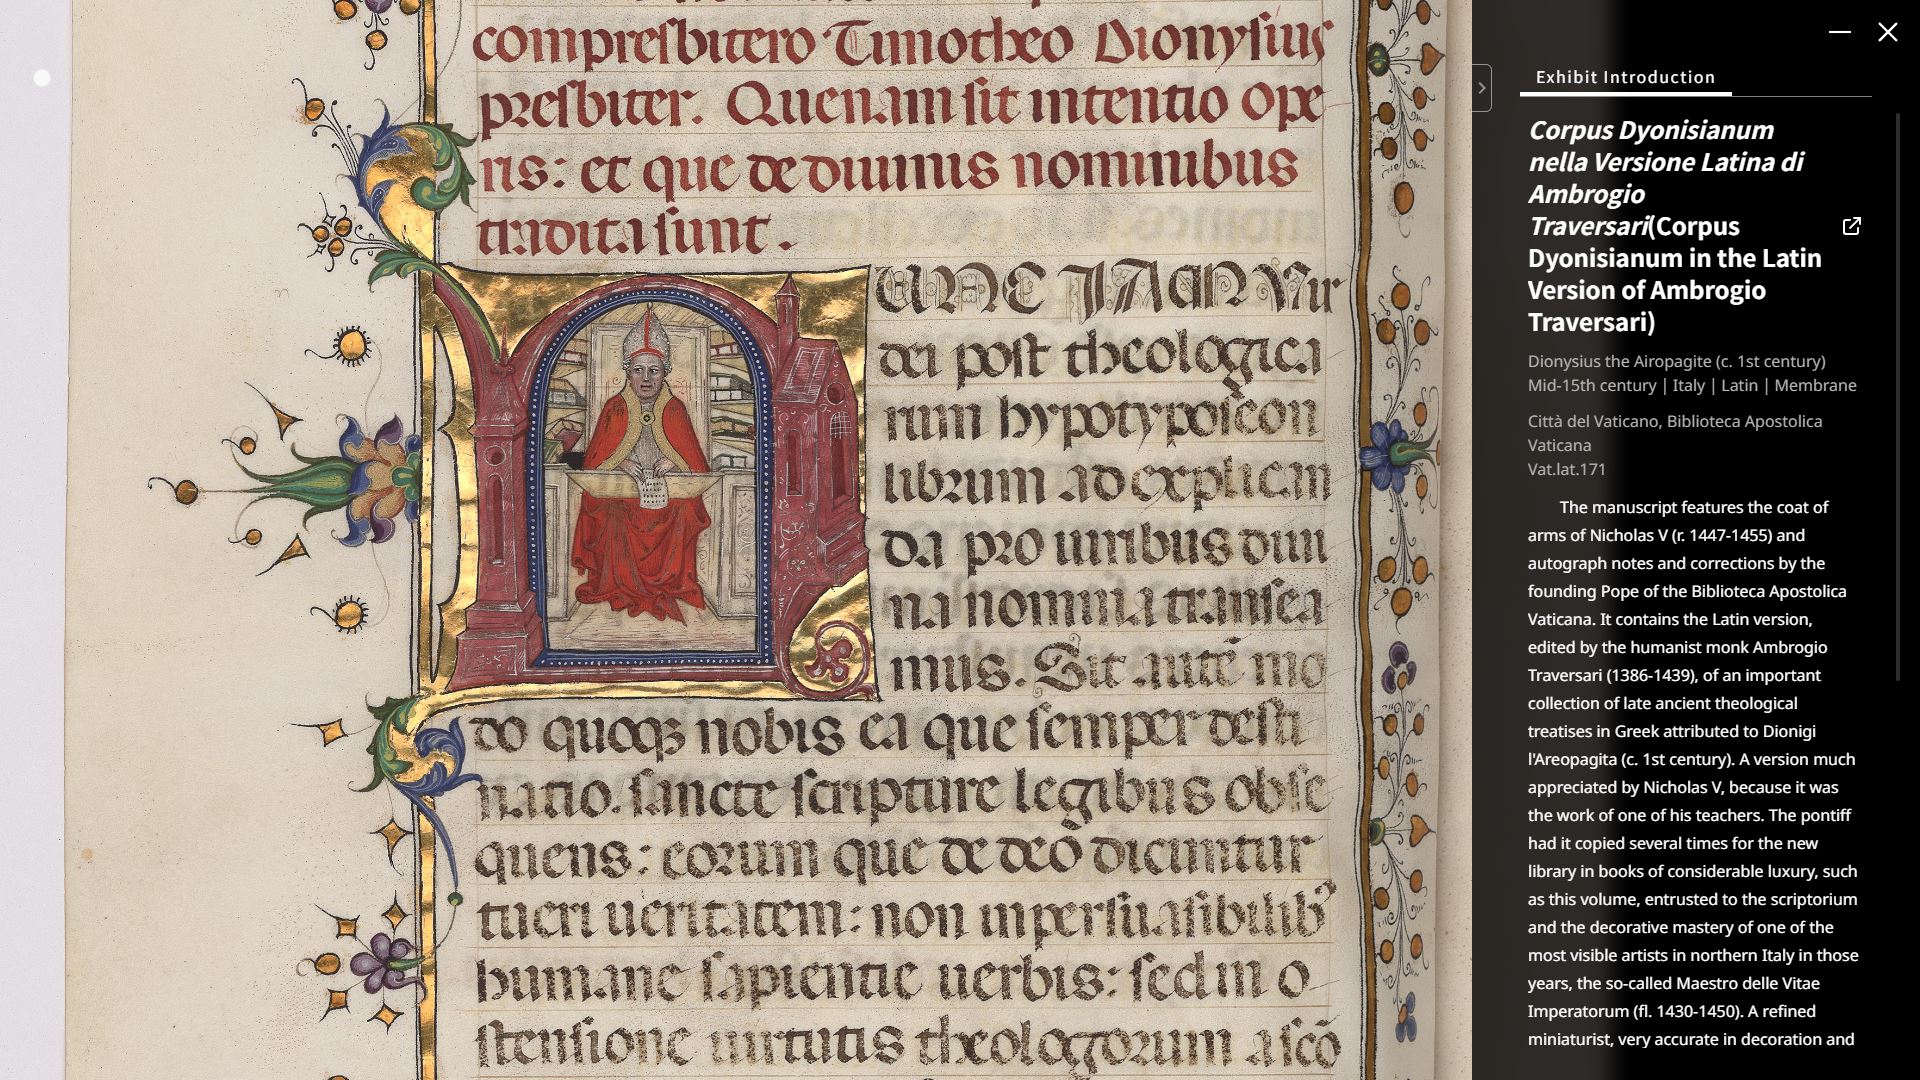 compresbitero Timotheo Dionysius
presbiter. Quenam sit intentio ope
ris: et que de diuinis nominibus
tradita sunt.
NUNC IAM Vir
dei post theologica
rum hypotyposeon
librum ad explican
da pro uiribus diui
na nomina transea
mus. Sit autē mo
do quoqꝫ nobis ea que semper desti
natio. sancte scripture legibus obse
quens: eorum que de deo dicuntur
tueri ueritatem: non in persuasibilibꝰ
humane sapientie uerbis: sed in o
stensione uirtutis theologorum a sco
Exhibit Introduction
Corpus Dyonisianum
nella Versione Latina di
Ambrogio
Traversari(Corpus
Dyonisianum in the Latin
Version of Ambrogio
Traversari)
Dionysius the Airopagite (c. 1st century)
Mid-15th century | Italy | Latin | Membrane
Città del Vaticano, Biblioteca Apostolica
Vaticana
Vat.lat.171
The manuscript features the coat of
arms of Nicholas V (r. 1447-1455) and
autograph notes and corrections by the
founding Pope of the Biblioteca Apostolica
Vaticana. It contains the Latin version,
edited by the humanist monk Ambrogio
Traversari (1386-1439), of an important
collection of late ancient theological
treatises in Greek attributed to Dionigi
l'Areopagita (c. 1st century). A version much
appreciated by Nicholas V, because it was
the work of one of his teachers. The pontiff
had it copied several times for the new
library in books of considerable luxury, such
as this volume, entrusted to the scriptorium
and the decorative mastery of one of the
most visible artists in northern Italy in those
years, the so-called Maestro delle Vitae
Imperatorum (fl. 1430-1450). A refined
miniaturist, very accurate in decoration and